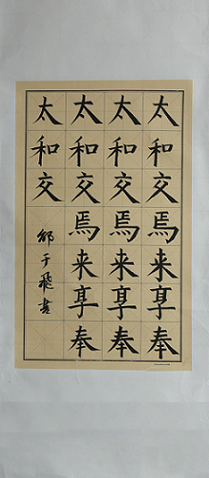 太和交焉来享奉
太和交焉来享奉
太和交焉来享奉
太和交
邹千飛書